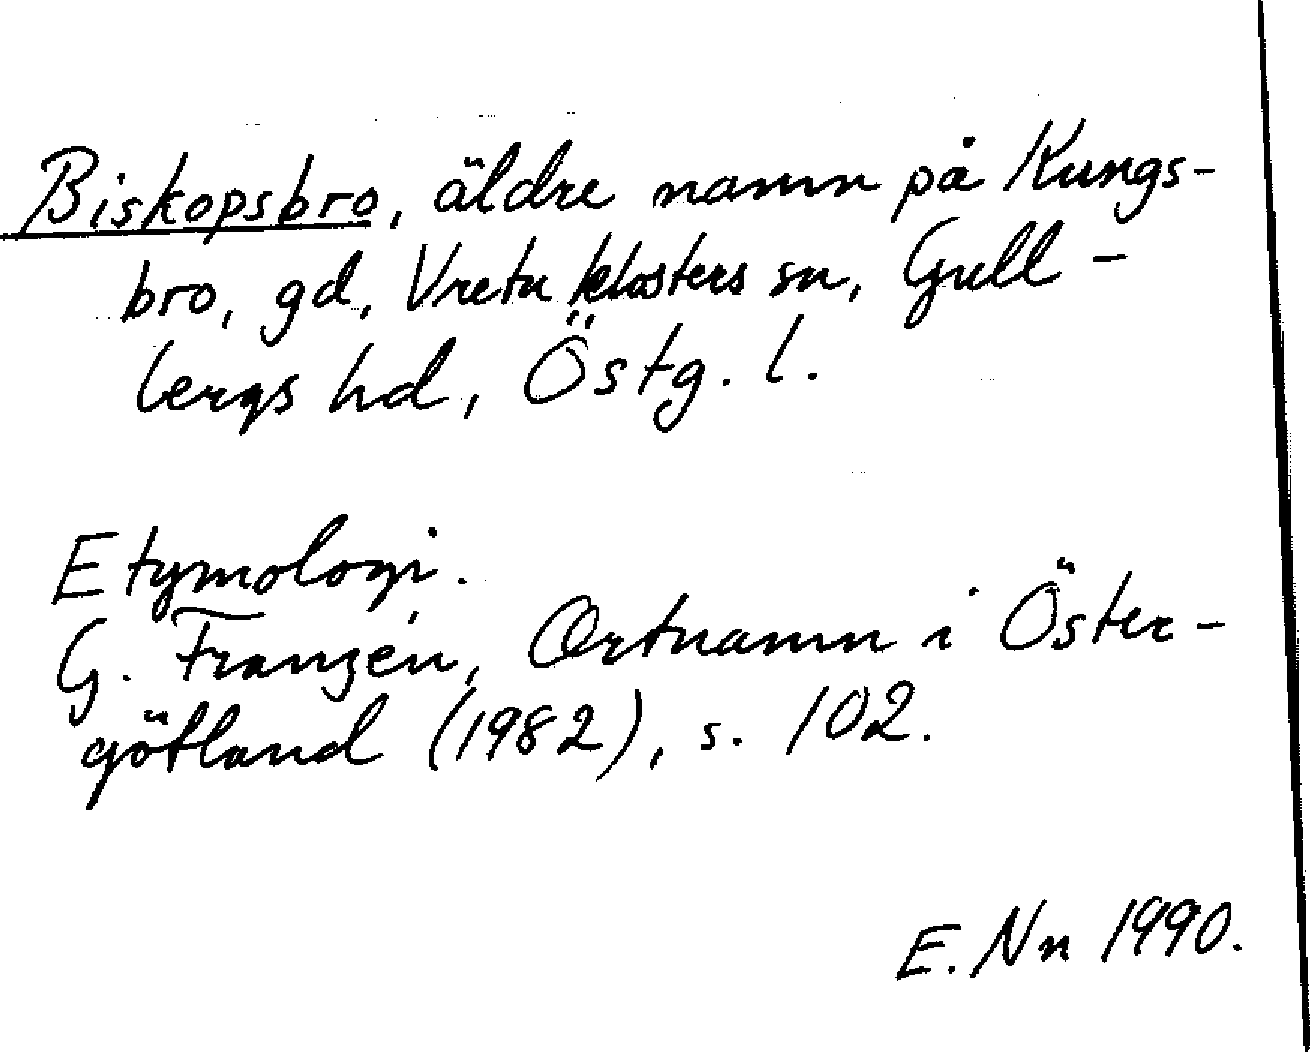 Biskopsbro, äldre namn på Kungs-
bro, gd, Vreta klosters sn, Gull-
bergs hd, Östg. l.
Etymologi.
G. Franzén, Ortnamn i Öster-
götland (1982), s. 102.
E. Nn 1990.